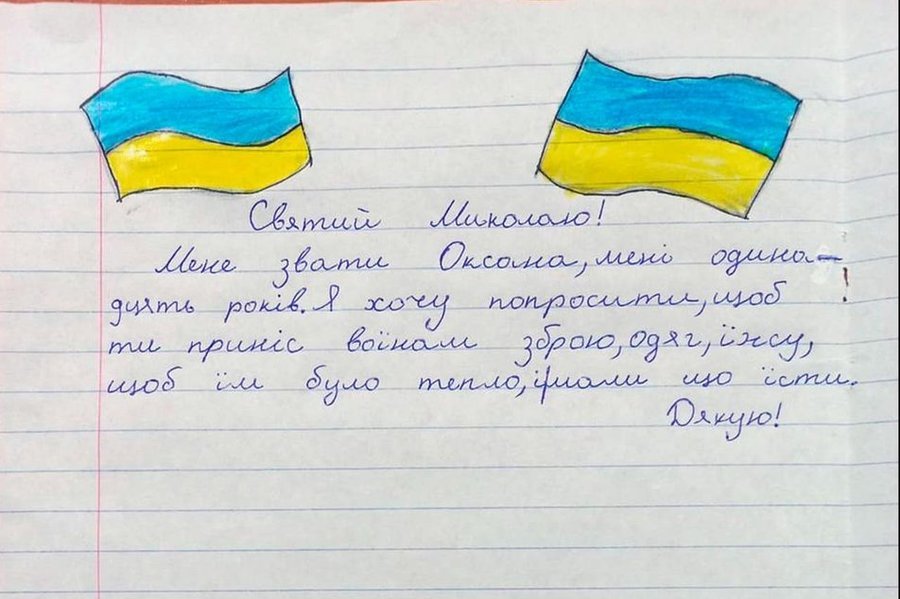 Святий Миколаю!
Мене звати Оксана, мені одина-
дцять років. Я хочу попросити, щоб
ти приніс воїнам зброю, одяг, їжу,
щоб їм було тепло, і мали що їсти.
Дякую!